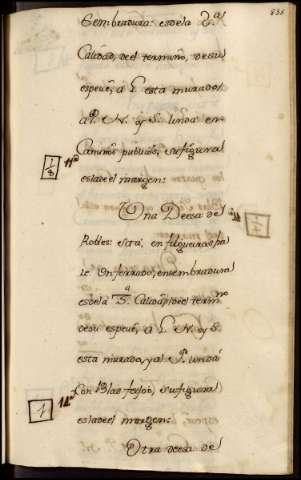 836
Sembradura: es de la 2.ª
Calidad, de el termino, de su
especie, á L. esta murado
al P. N. y S. linda con
Caminos publicos, su figura
es la de el margen:
Una Deesa de
Robles: será, en filgueiras
de Un ferrado, en sembradura
es de la 3.ª Calidad, de el term.no
de su especie, á L. N. y S.
esta murado, y al P. linda
Con Blas feyjoó, su figura
es la de el margen:
Otra deesa de